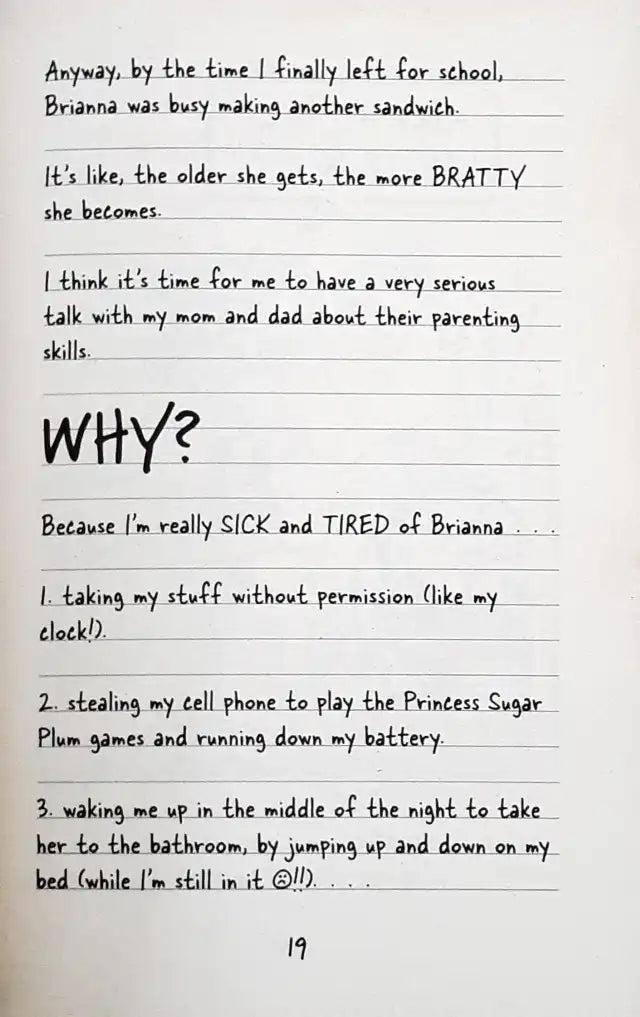 Anyway, by the time I finally left for school,
Brianna was busy making another sandwich.
It's like, the older she gets, the more BRATTY
she becomes.
I think it's time for me to have a very serious
talk with my mom and dad about their parenting
skills.
WHY?
Because I'm really SICK and TIRED of Brianna . . .
1. taking my stuff without permission (like my
clock!).
2. stealing my cell phone to play the Princess Sugar
Plum games and running down my battery.
3. waking me up in the middle of the night to take
her to the bathroom, by jumping up and down on my
bed (while I'm still in it ☹!!). . . .
19